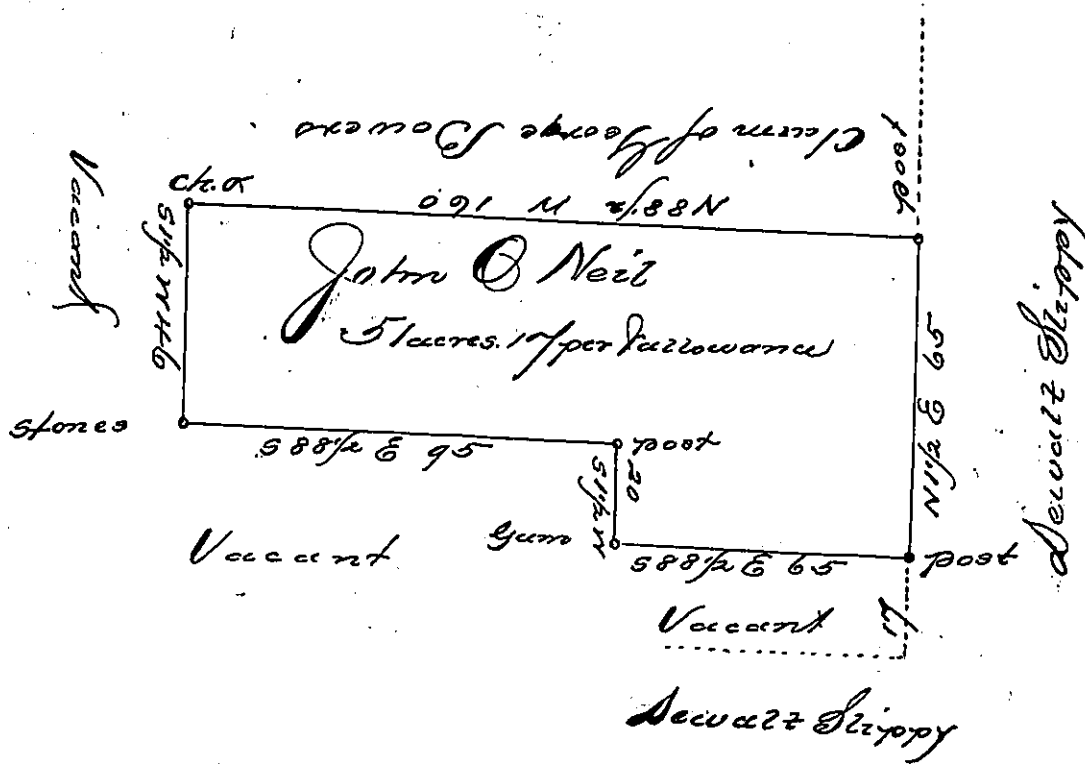 Claim of George Bowers
post
Vacant
ch. o
N 88 1/2 W 160
S 1 1/2 W 46
John O Neil
51 acres. 17 per & allowance
N 1 1/2 E 65
Dewalt Slippy
stones
S 88 1/2 E 95
post
S 1 1/2 W
20
Vacant
Gum
S 88 1/2 E 65
post
Vacant
17
Dewalt Slippy